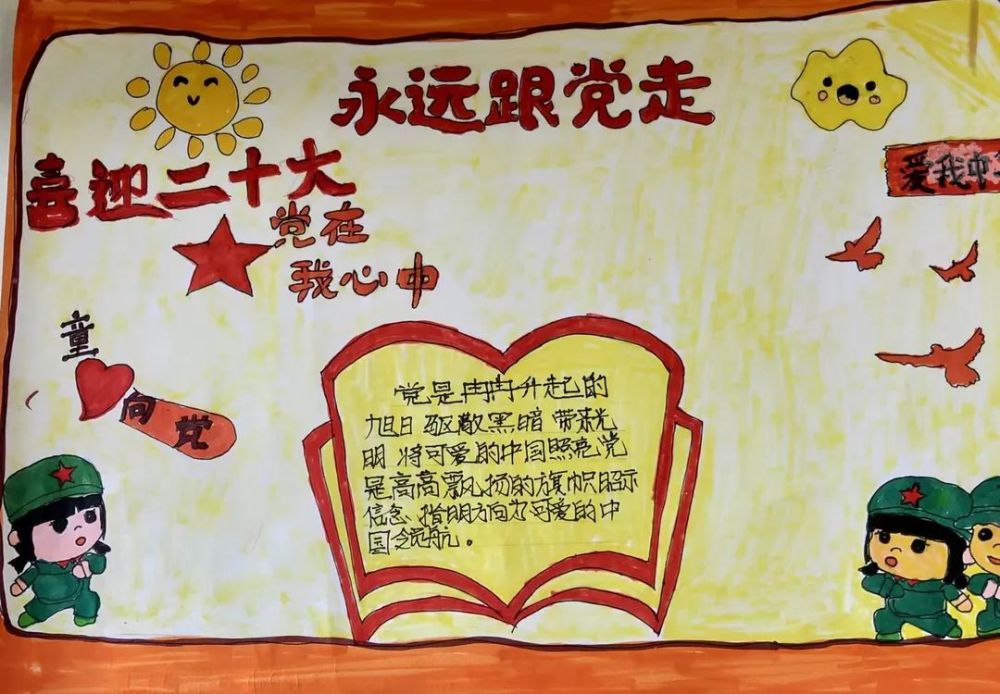 永远跟党走
喜迎二十大
党在
我心中
爱我中
童
向党
党是冉冉升起的
旭日驱散黑暗带来光
明 将可爱的中国照亮党
是高高飘扬的旗帜昭示
信念、指明方向为可爱的中
国远航。